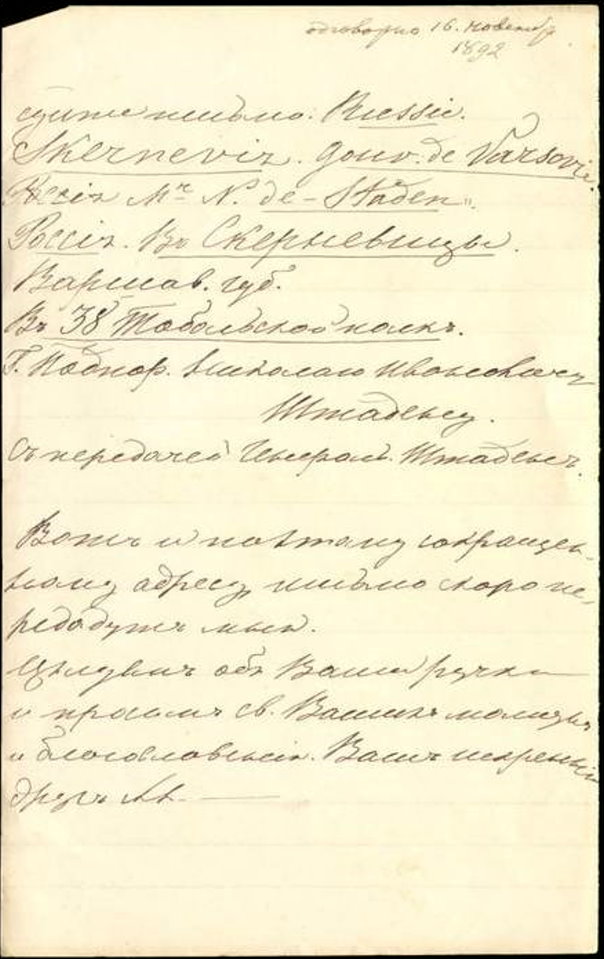 одговорио 16. новембр.
1892
сущее письмо. Russie.
Skernevix. gouv. de Varsovie.
Россія Mr N. de-Staden.
Россія. Въ Скерневицы.
Варшав. губ.
Въ 38 Тобольской полкъ.
Г. Подпор. Николаю Ивановичу
Штадену.
Съ передачей Генерал. Штаденъ.
Вотъ и по этому сокращен-
ному адресу, письмо скоро пе-
редадутъ мнѣ.
Цѣлуемъ обѣ Ваши ручки
и просимъ св. Вашихъ молитвъ
и благословенія. Вашъ искренній
другъ